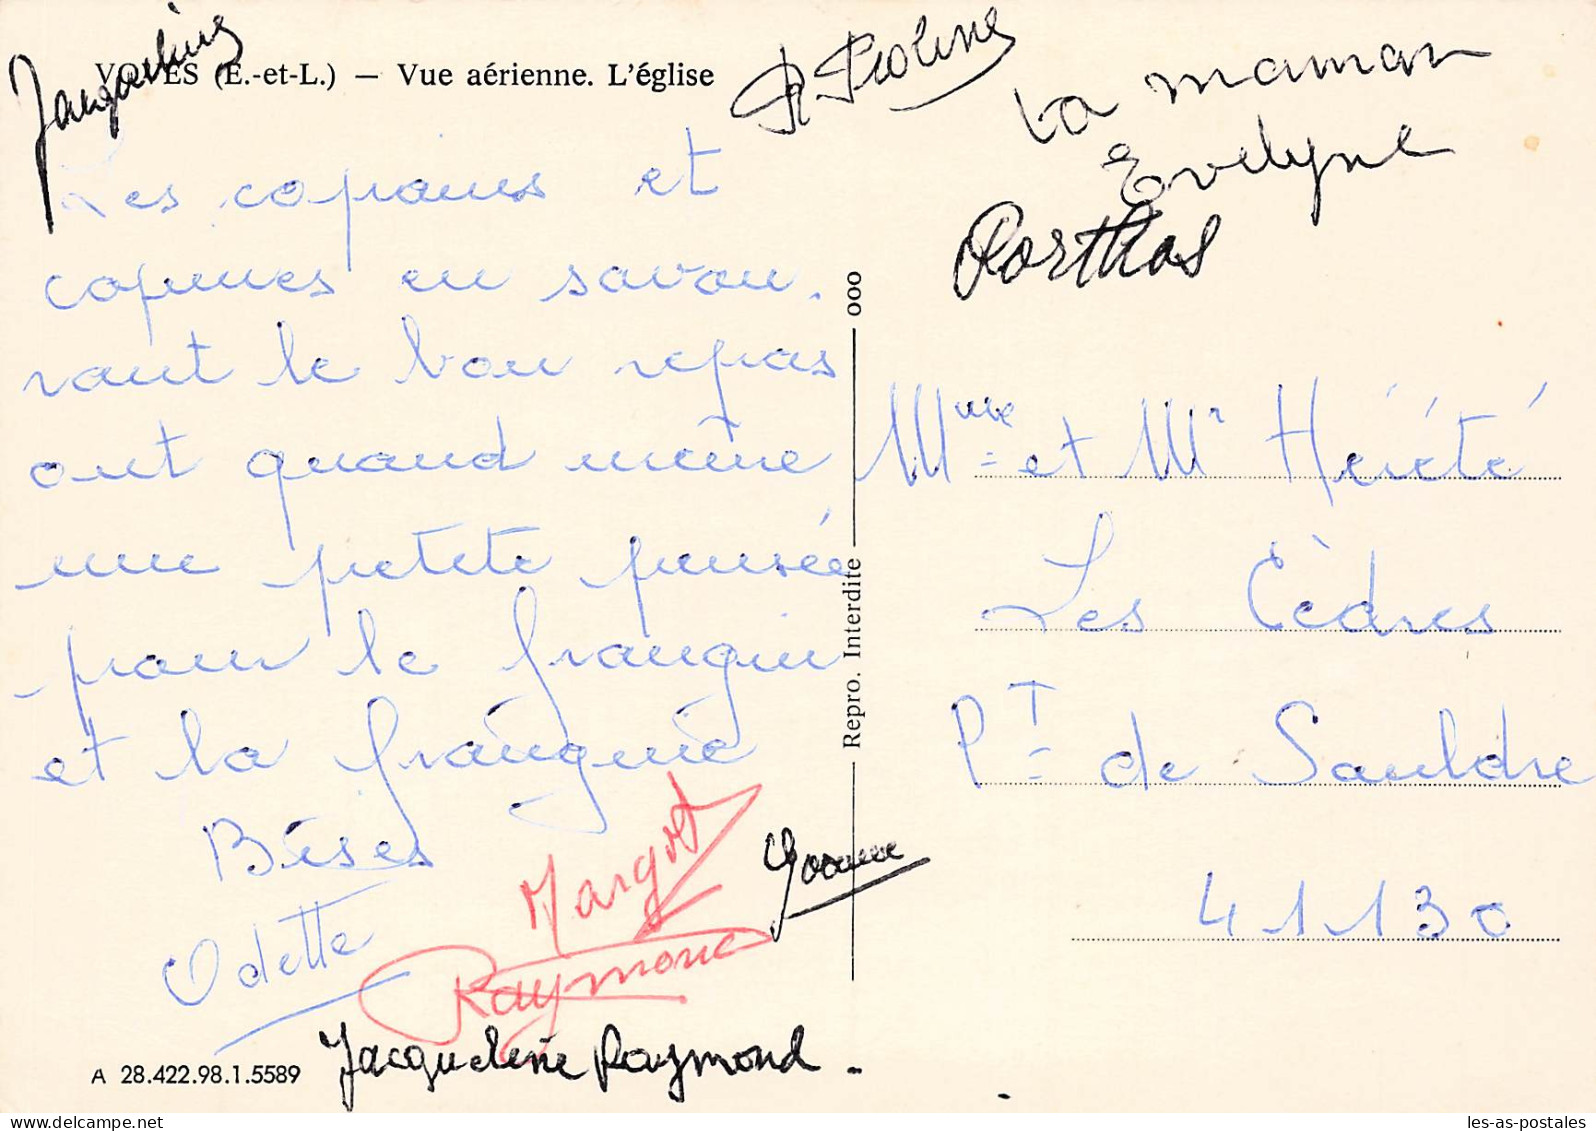 Jacqueline
VOVES (E.-et-L.) — Vue aérienne. L'église
Les copains et
copines en savou.
rant le bon repas
ont quand même
une petite pensée
pour le frangin
et la frangine
Bises
Odette
Margot
Raymond
Jacqueline Raymond.
A 28.422.98.1.5589
Repro. Interdite
ooo
la maman
Evelyne
Porthos
Mme et Mr Hérété
Les Cèdres
Pt de Sauldre
41130
les-as-postales
les-as-postales.com